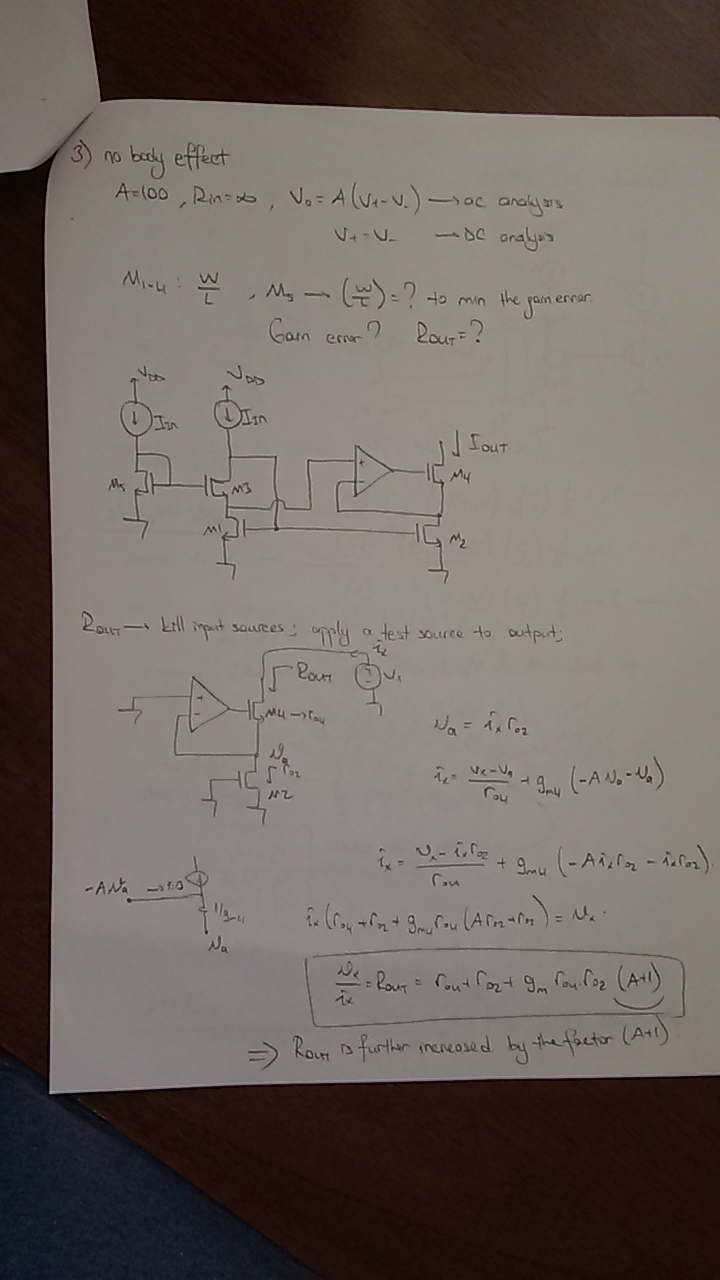 3) no body effect
A=100 , Rin=∞ , Vo = A(V+ - V-) → ac analysis
V+ = V- → DC analysis
M1-4 : W/L , M5 → (W/L) = ? to min the gain error.
Gain error? ROUT = ?
VDD VDD
IIn IIn
IOUT
+ -
M5 M3 M4
M1 M2
ROUT → kill input sources ; apply a test source to output;
ix
ROUT Vx
+ -
M4 → ro4
va
ro2
M2
va = ix ro2
ix = (vx - va)/ro4 + gm4 (-Ava - va)
ix = (vx - ix ro2)/ro4 + gm4 (-A ix ro2 - ix ro2).
-Ava → i=0
1/gm4
va
ix (ro4 + ro2 + gm4 ro4 (A ro2 + ro2)) = vx .
vx/ix = ROUT = ro4 + ro2 + gm ro4 . ro2 (A+1)
⇒ ROUT is further increased by the factor (A+1)